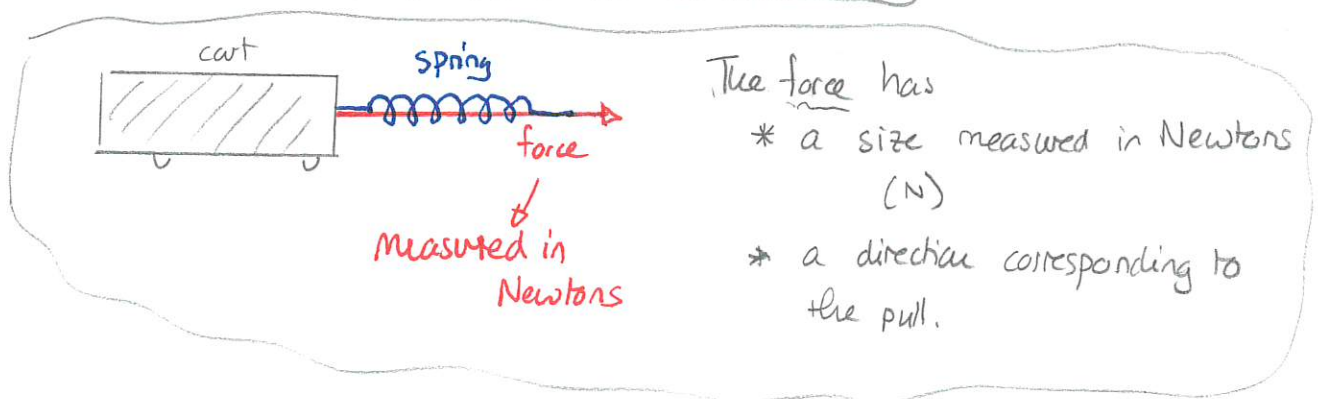 cart
spring
force
Measured in
Newtons
The force has
* a size measured in Newtons
(N)
* a direction corresponding to
the pull.